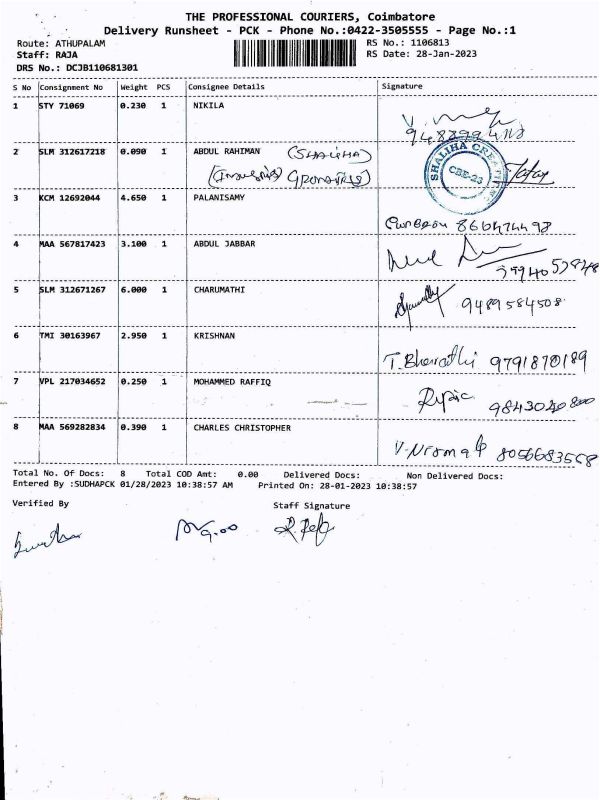 THE PROFESSIONAL COURIERS, Coimbatore
Delivery Runsheet - PCK - Phone No.:0422-3505555 - Page No.:1
Route: ATHUPALAM
RS No.: 1106813
Staff: RAJA
RS Date: 28-Jan-2023
DRS No.: DCJB110681301
S No Consignment No Weight PCS Consignee Details Signature
1 STY 71069 0.230 1 NIKILA
2 SLM 312617218 0.090 1 ABDUL RAHIMAN (SHALIHA)
SHALIHA CREATIONS
CBE-23
3 KCM 12692044 4.650 1 PALANISAMY
4 MAA 567817423 3.100 1 ABDUL JABBAR
5 SLM 312671267 6.000 1 CHARUMATHI
9489584508
6 TMI 30163967 2.950 1 KRISHNAN
T. Bharathi 9791870189
7 VPL 217034652 0.250 1 MOHAMMED RAFFIQ
8 MAA 569282834 0.390 1 CHARLES CHRISTOPHER
8056683568
Total No. Of Docs: 8 Total COD Amt: 0.00 Delivered Docs: Non Delivered Docs:
Entered By :SUDHAPCK 01/28/2023 10:38:57 AM Printed On: 28-01-2023 10:38:57
Verified By Staff Signature
9.00